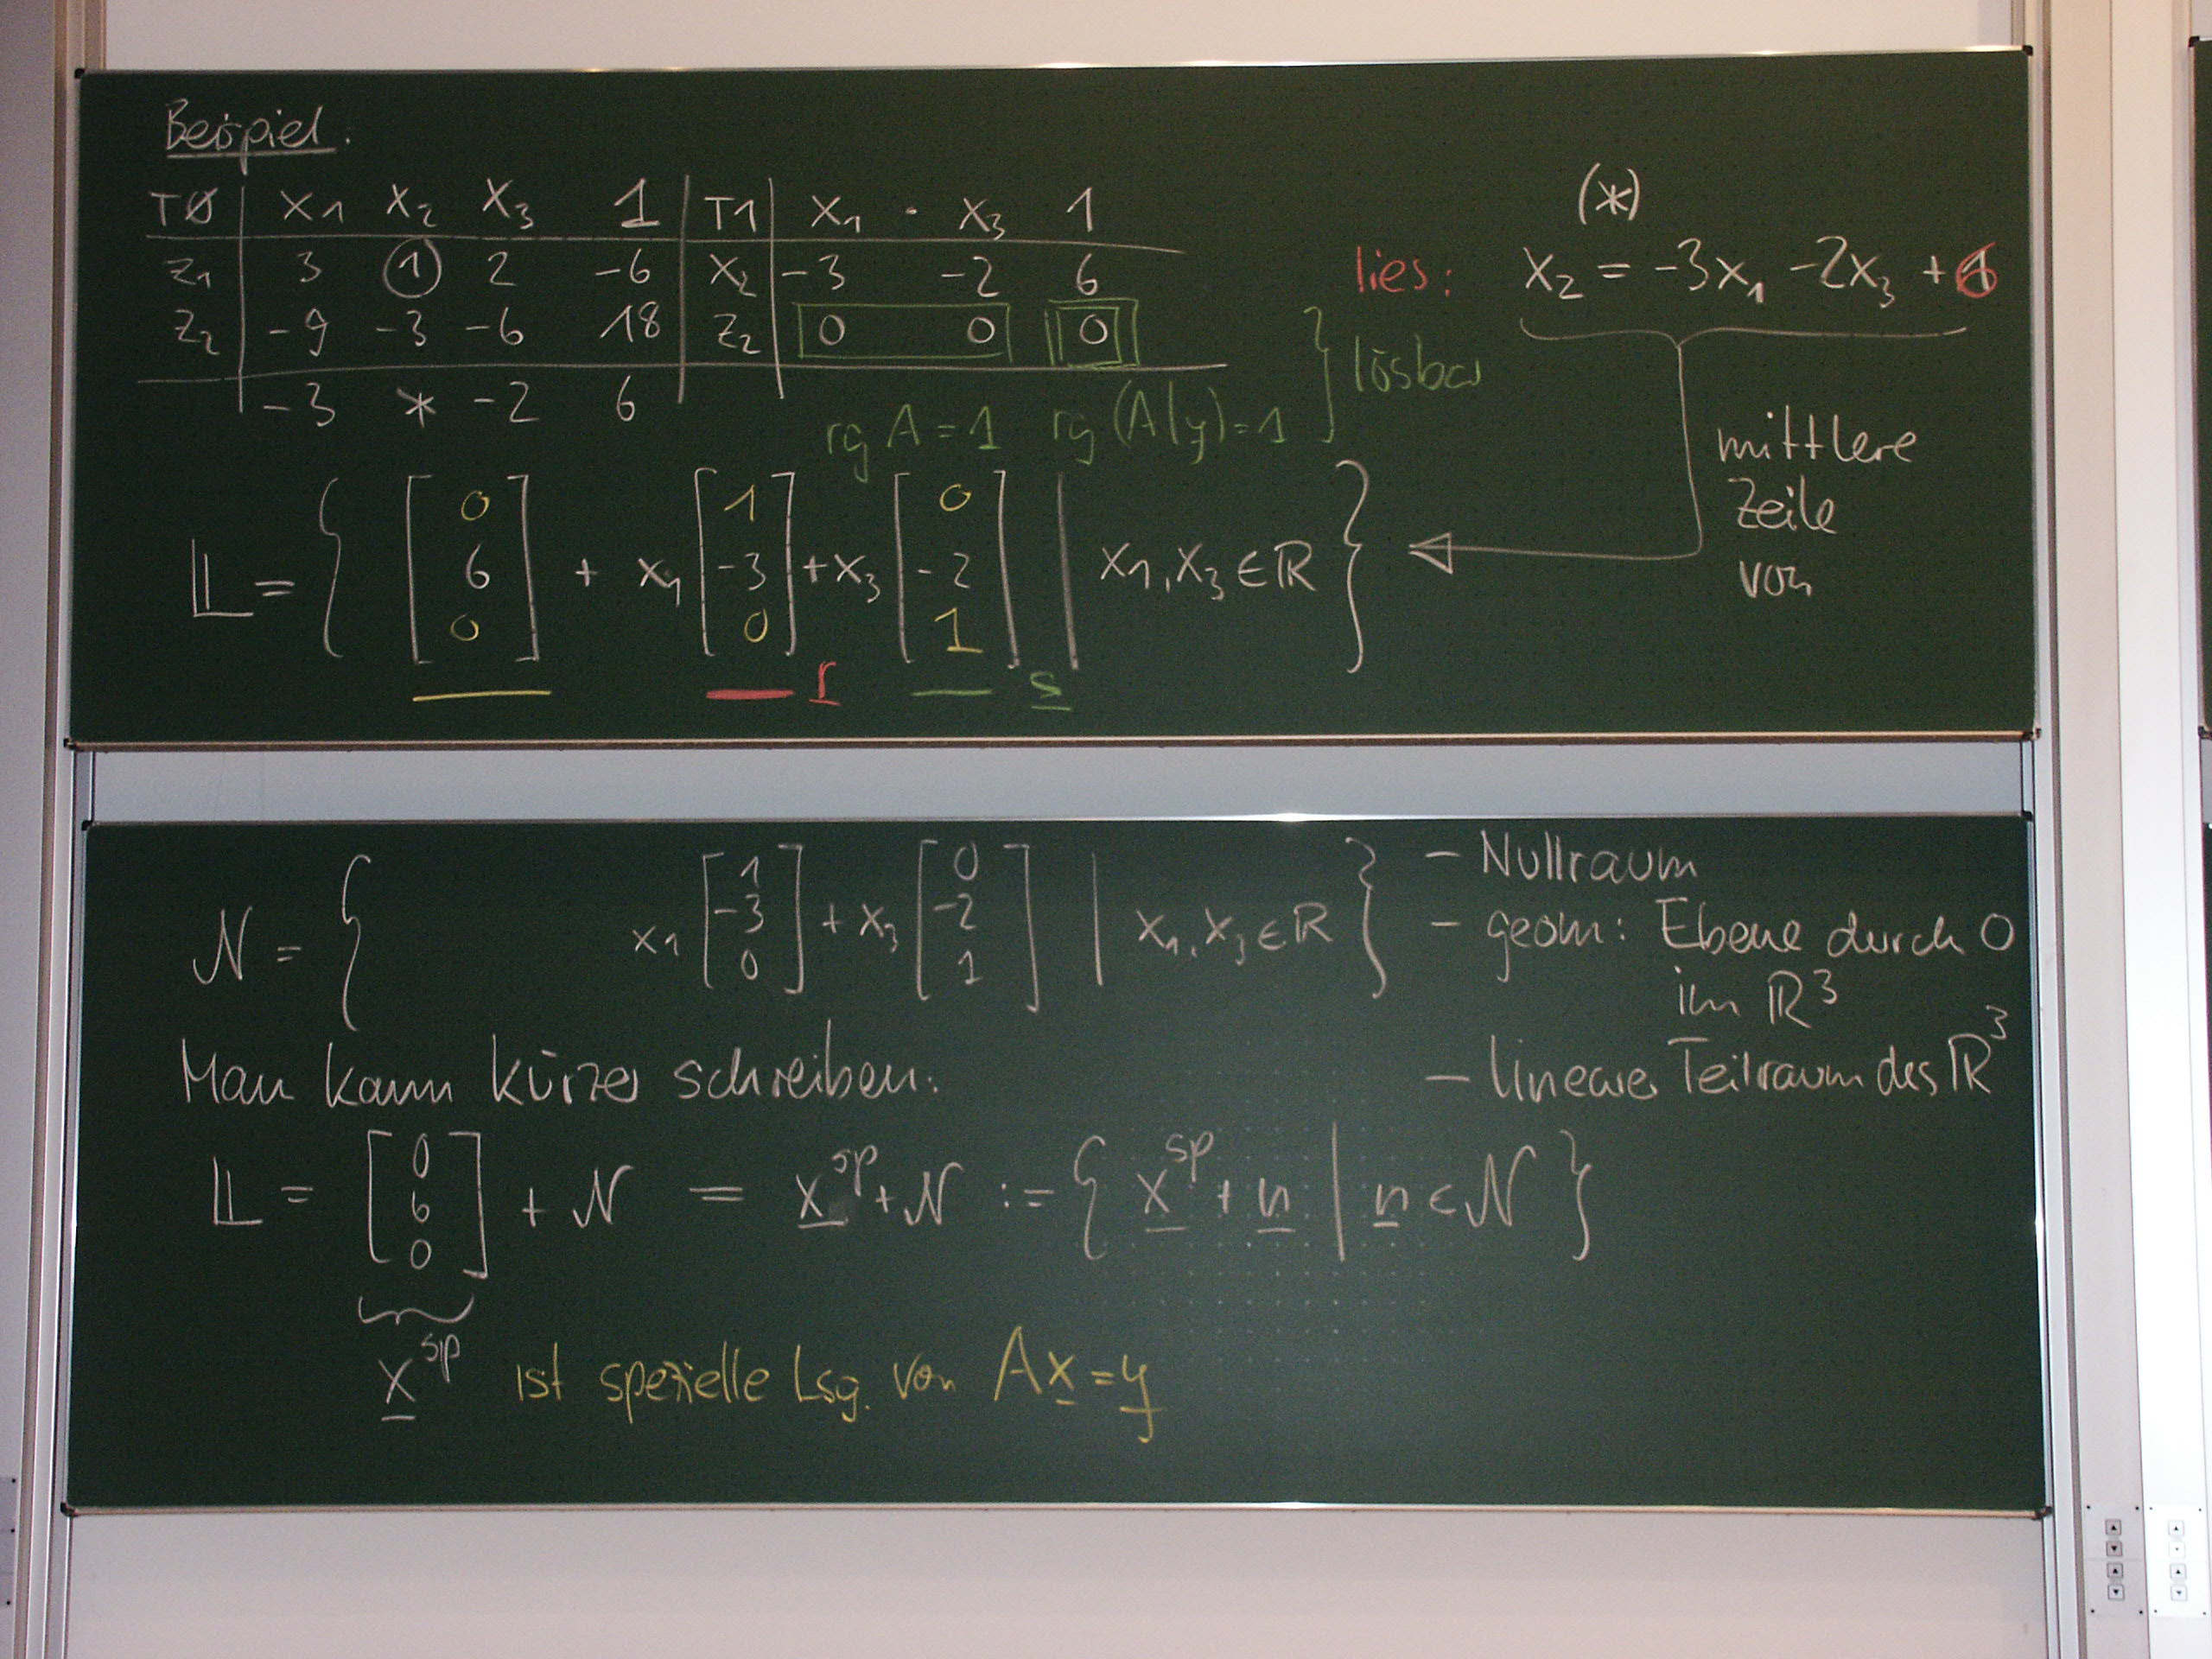 Beispiel.
T0 | x1 x2 x3 1 | T1 | x1 · x3 1
z1 | 3 1 2 -6 | x2 | -3 -2 6
z2 | -9 -3 -6 18 | z2 | 0 0 0
-3 * -2 6
rg A = 1 rg (A|y) = 1 } lösbar
(*)
lies: x2 = -3x1 -2x3 + 6
mittlere
Zeile
von
𝕃 = { [0 6 0] + x1 [1 -3 0] + x3 [0 -2 1] | x1, x3 ∈ ℝ }
r s
N = { x1 [1 -3 0] + x3 [0 -2 1] | x1, x3 ∈ ℝ }
- Nullraum
- geom: Ebene durch 0
im ℝ³
- linearer Teilraum des ℝ³
Man kann kürzer schreiben:
𝕃 = [0 6 0] + N = x^sp + N := { x^sp + n | n ∈ N }
x^sp ist spezielle Lsg. von Ax = y